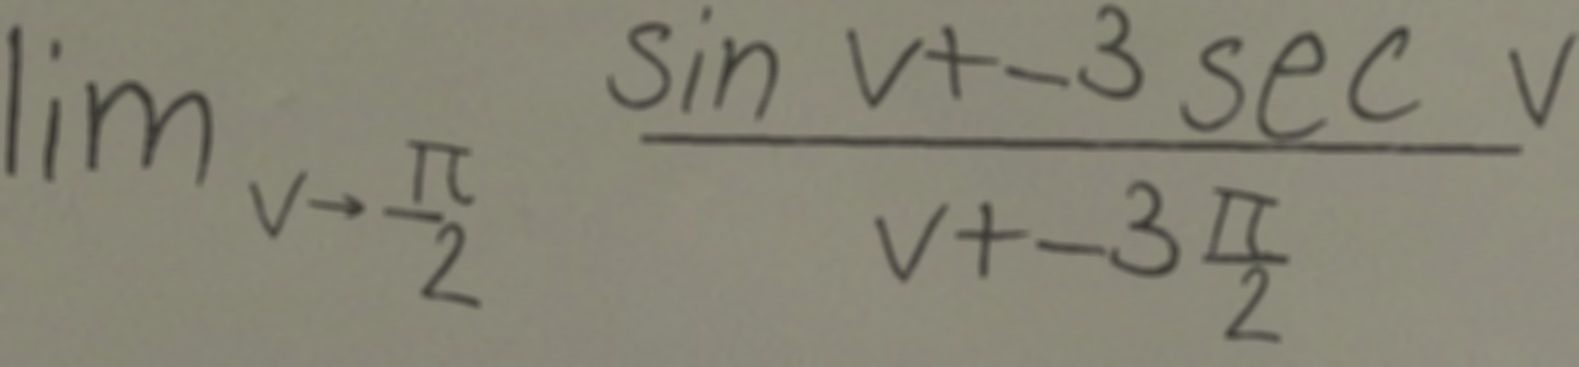 lim_{v→\frac{π}{2}} \frac{sin v+-3 sec v}{v+-3\frac{π}{2}}